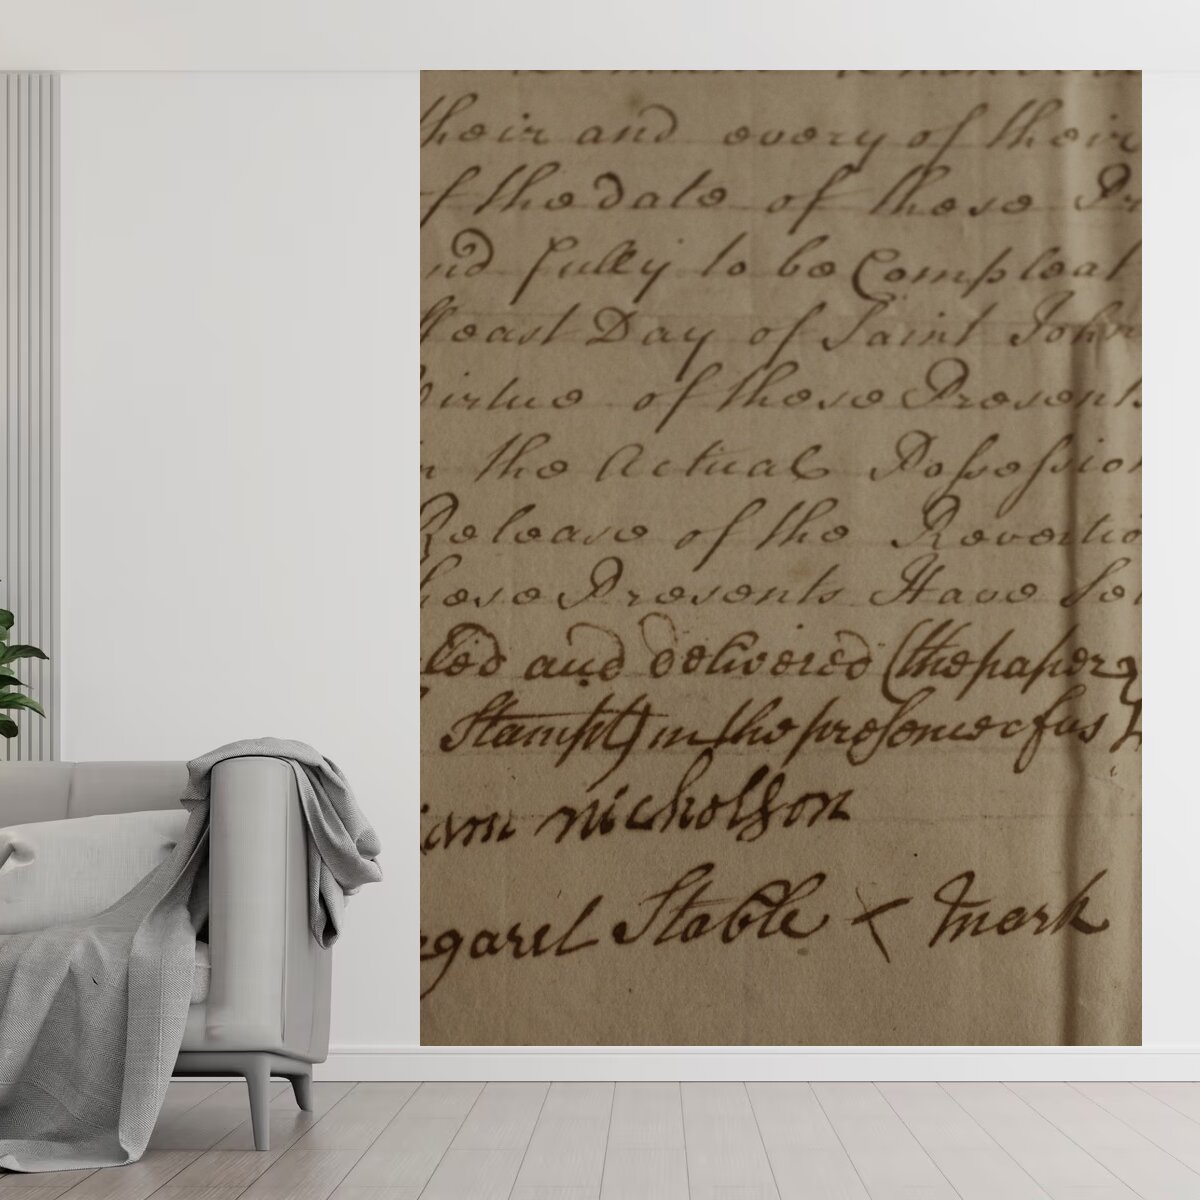 their and every of their
of the date of these Pr
nd fully to be Compleat
ffeast Day of Saint John
Virtue of these Presents
n the Actual Possession
Release of the Revertio
hese Presents Have Set
led and delivered (the paper
Stampt) in the presence of us
iam nicholson
rgaret Stable × Mark